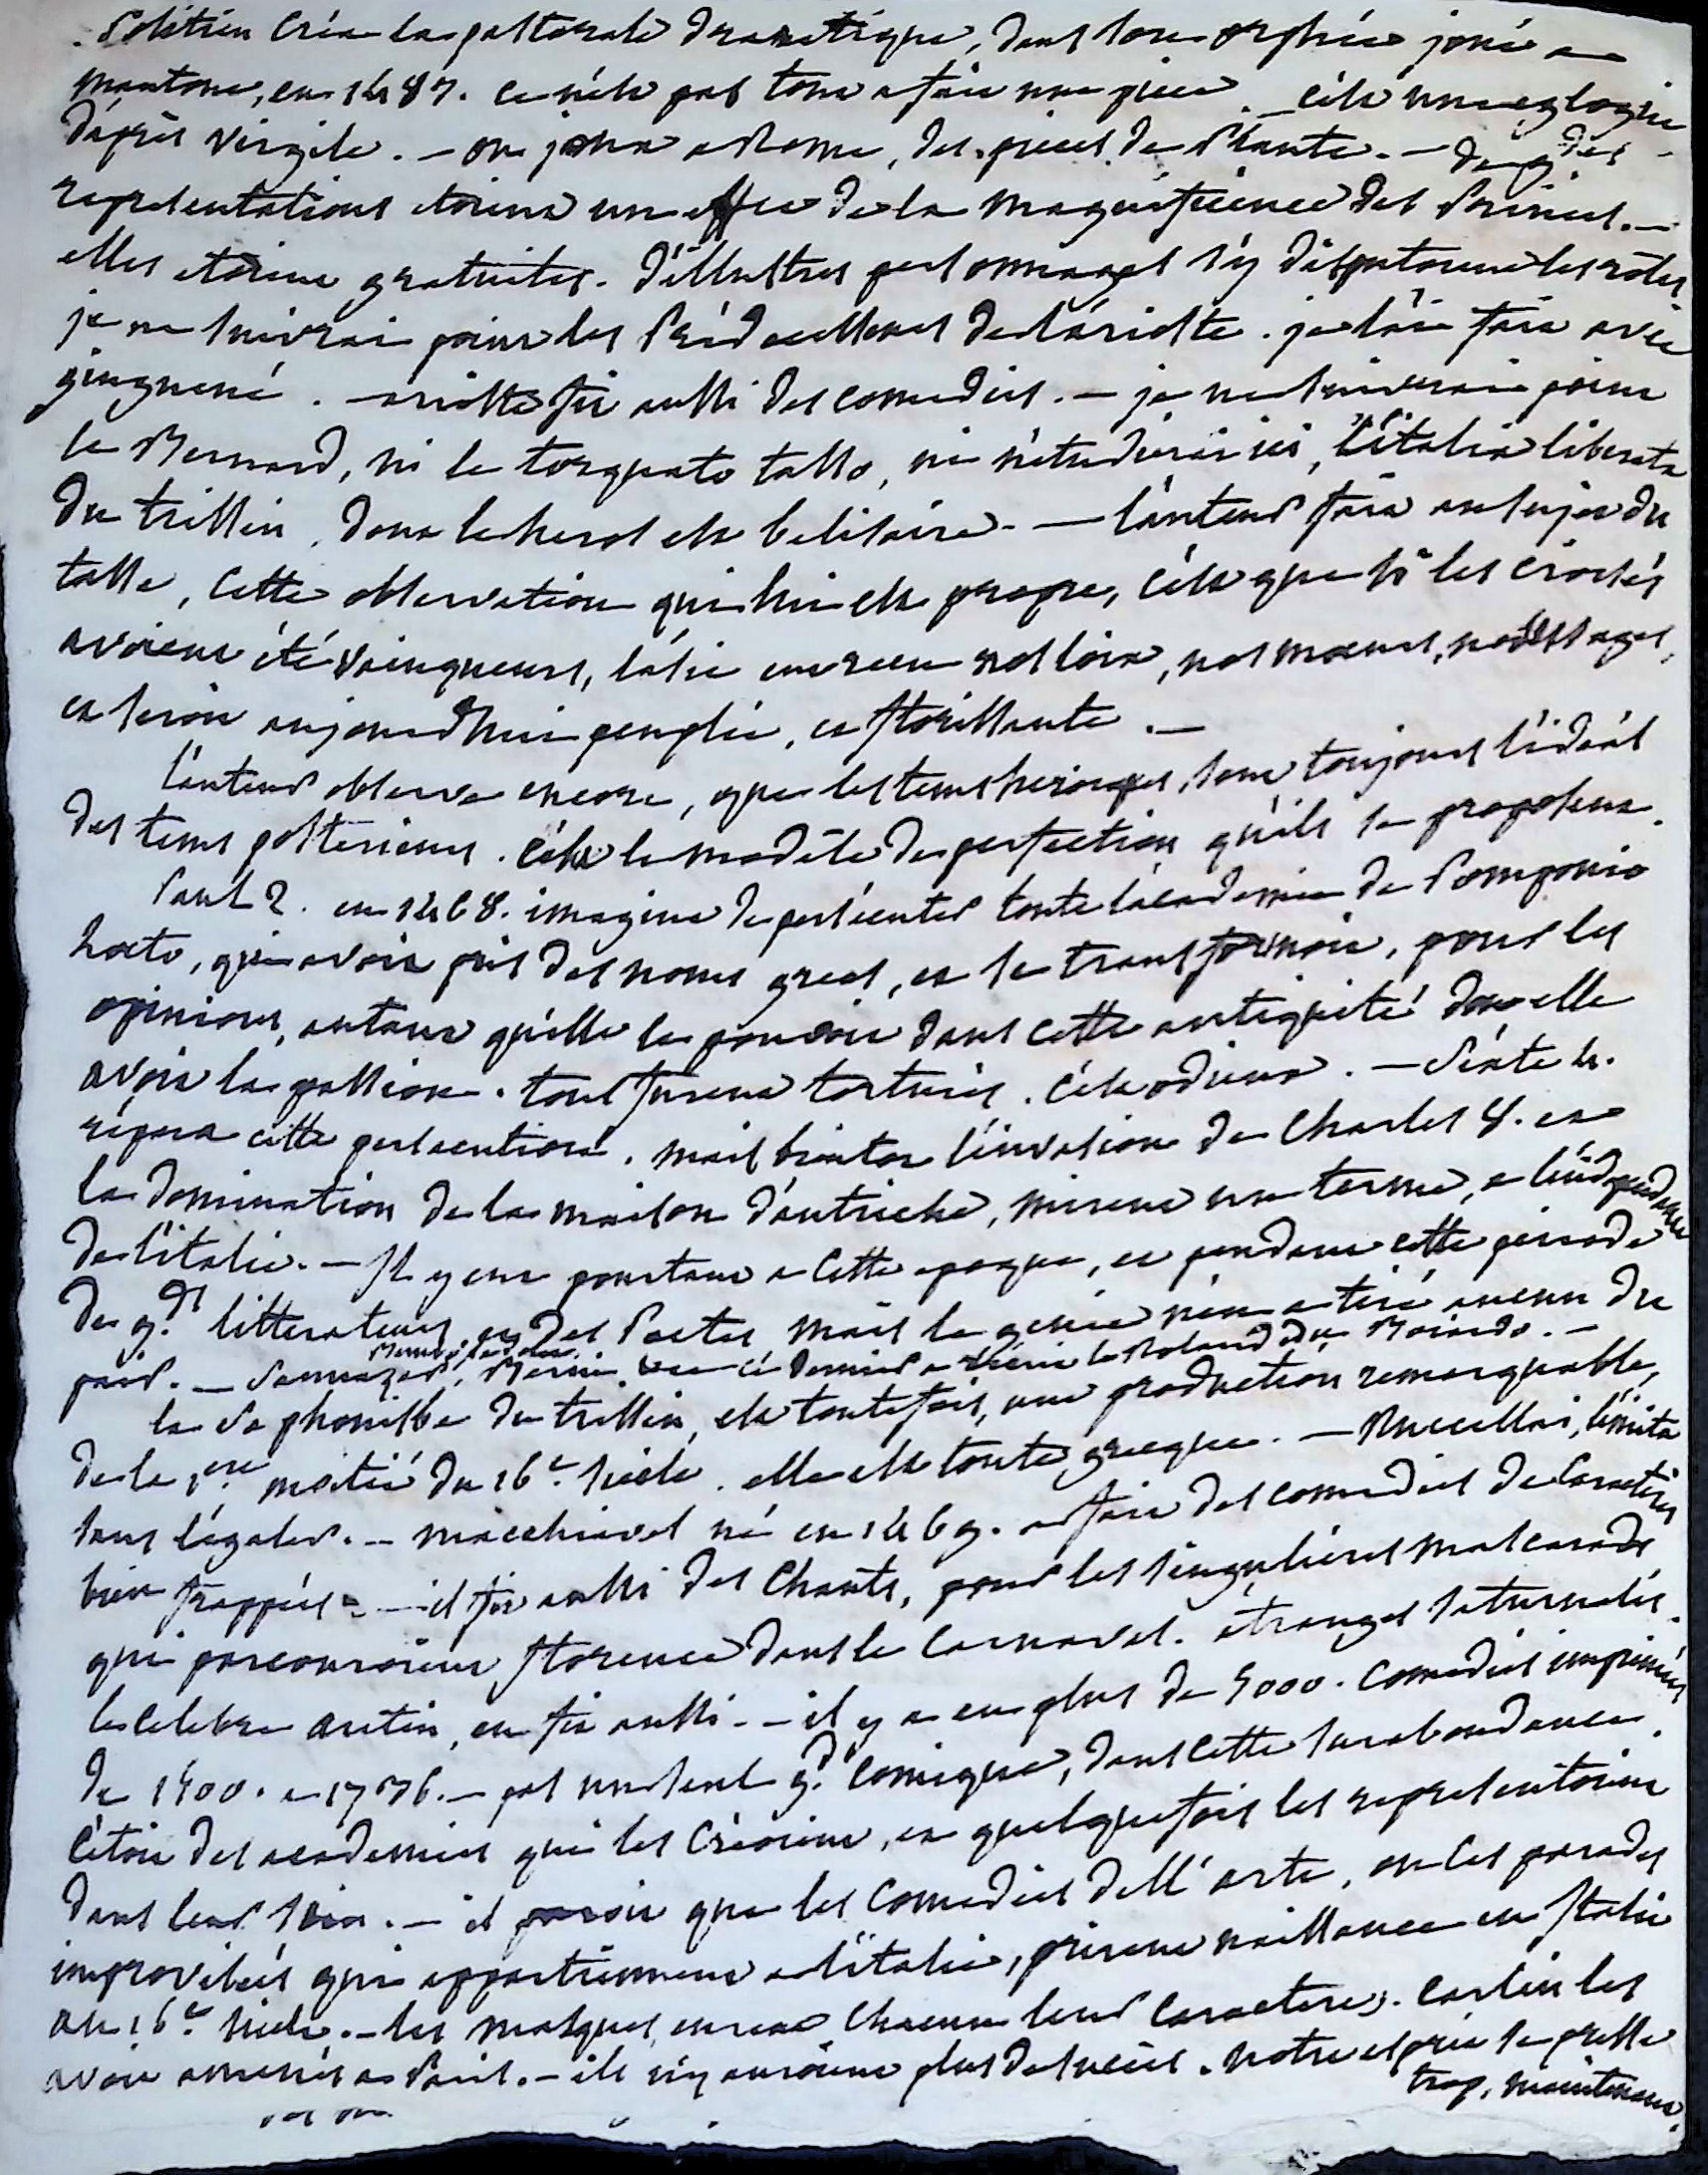 Politien créa la pastorale dramatique, dans son orphée joué a
mantoue, en 1487. ce n'est pas tout a fait une piece. c'est une eglogue
d'après virgile. — on joua a Rome, des pieces de Plaute. — de g.des
representations etoient un effet de la magnificence des Princes. —
elles etoient gratuites. d'illustres personnages s'y disputoient les rôles
je ne suivrai point les Prédecesseurs de l'arioste. je l'ai fait avec
ginguené. — arioste fit aussi des comedies. — je ne suivrai point
le Bernard, ni le torquato tasso, ni n'étudierai ici, l'italia liberata
du trissin, dont le heros est belisaire. — l'auteur fait au sujet du
tasse, cette observation qui lui est propre, c'est que si les croisés
avoient été vainqueurs, l'asie eut reçu nos loix, nos mœurs, nos usages,
et seroit aujourdhui peuplée, et florissante. —
l'auteur observe encore, que les tems heroiques, sont toujours l'idéal
des tems posterieurs. c'est le modèle de perfection qu'ils se proposent.
Paul 2. en 1468. imagina de persécuter toute l'academie de Pomponio
Laeto, qui avoit pris des noms grecs, et se transformoit, pour les
opinions, autant qu'elle le pouvoit dans cette antiquité dont elle
avoit la passion. tous furent torturés. c'est odieux. — Sixte 4.
répara cette persecution. mais bientot l'invasion de Charles 8. et
la domination de la maison d'autriche, mirent un terme, a l'independance
de l'italie. — Il y eut pourtant a cette epoque, et pendant cette periode
de g.ds litterateurs, et des Poetes mais le genie n'en a tiré aucun du
pair. — Sannazar, Berni, ce dernier a refait le Roland du Boiardo. —
la Sophonisbe du trissin, est toutefois, une production remarquable,
de la 1.ere moitié du 16.e siècle. elle est toute grecque. — Rucellai, l'imita
sans l'égaler. — macchiavel né en 1469. a fait des comedies de caractères
bien frappées. — il fit aussi des Chants, pour les singulieres mascarades
qui parcouroient florence dans le Carnaval. étranges saturnales.
le celebre aretin, en fit aussi. — il y a eu plus de 5000. comedies imprimées
de 1500. a 1736. — pas un seul g.d comique, dans cette surabondance.
c'étoit des academies qui les créoient, et quelquefois les representoient
dans leur sein. — il paroit que les comedies dell' arte, ou ces parades
improvisées qui appartiennent a l'italie, prirent naissance en Italie
au 16.e siecle. — les masques eurent chacun leur caractere. Carlin les
avoit amenés a Paris. — ils n'y auroient plus de succès. notre esprit se presse
trop, maintenant.